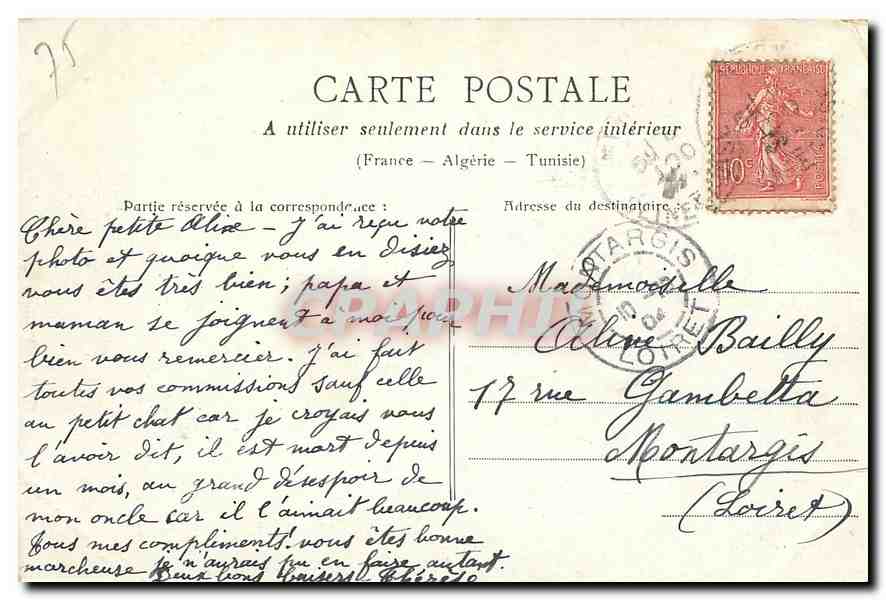 75
CARTE POSTALE
A utiliser seulement dans le service intérieur
(France — Algérie — Tunisie)
REPUBLIQUE FRANÇAISE
10c
POSTES
Partie réservée à la correspondance :
Adresse du destinataire
Chère petite Aline — J'ai reçu votre
photo et quoique vous en disiez
vous êtes très bien ; papa et
maman se joignent à moi pour
bien vous remercier. J'ai fait
toutes vos commissions sauf celle
au petit chat car je croyais vous
l'avoir dit, il est mort depuis
un mois, au grand désespoir de
mon oncle car il l'aimait beaucoup.
Tous mes compliments! vous êtes bonne
marcheuse je n'aurais pu en faire autant.
Deux bons baisers Thérèse
MONTARGIS
04
LOIRET
Mademoiselle
Aline Bailly
17 rue Gambetta
Montargis
(Loiret)
CPAPHIL